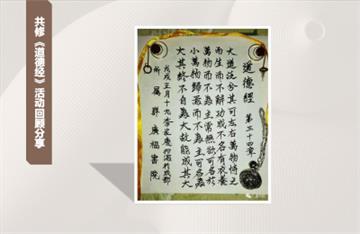 共修《道德经》活动回顾分享
道德經 第三十四章
大道泛兮其可左右萬物恃之
而生而不辭功成不名有衣養
萬物而不為主常無欲可名於
小萬物歸焉而不為主可名為
大其終不自為大故能成其大
戊戌正月十九李於成都
所屬群廣福書院